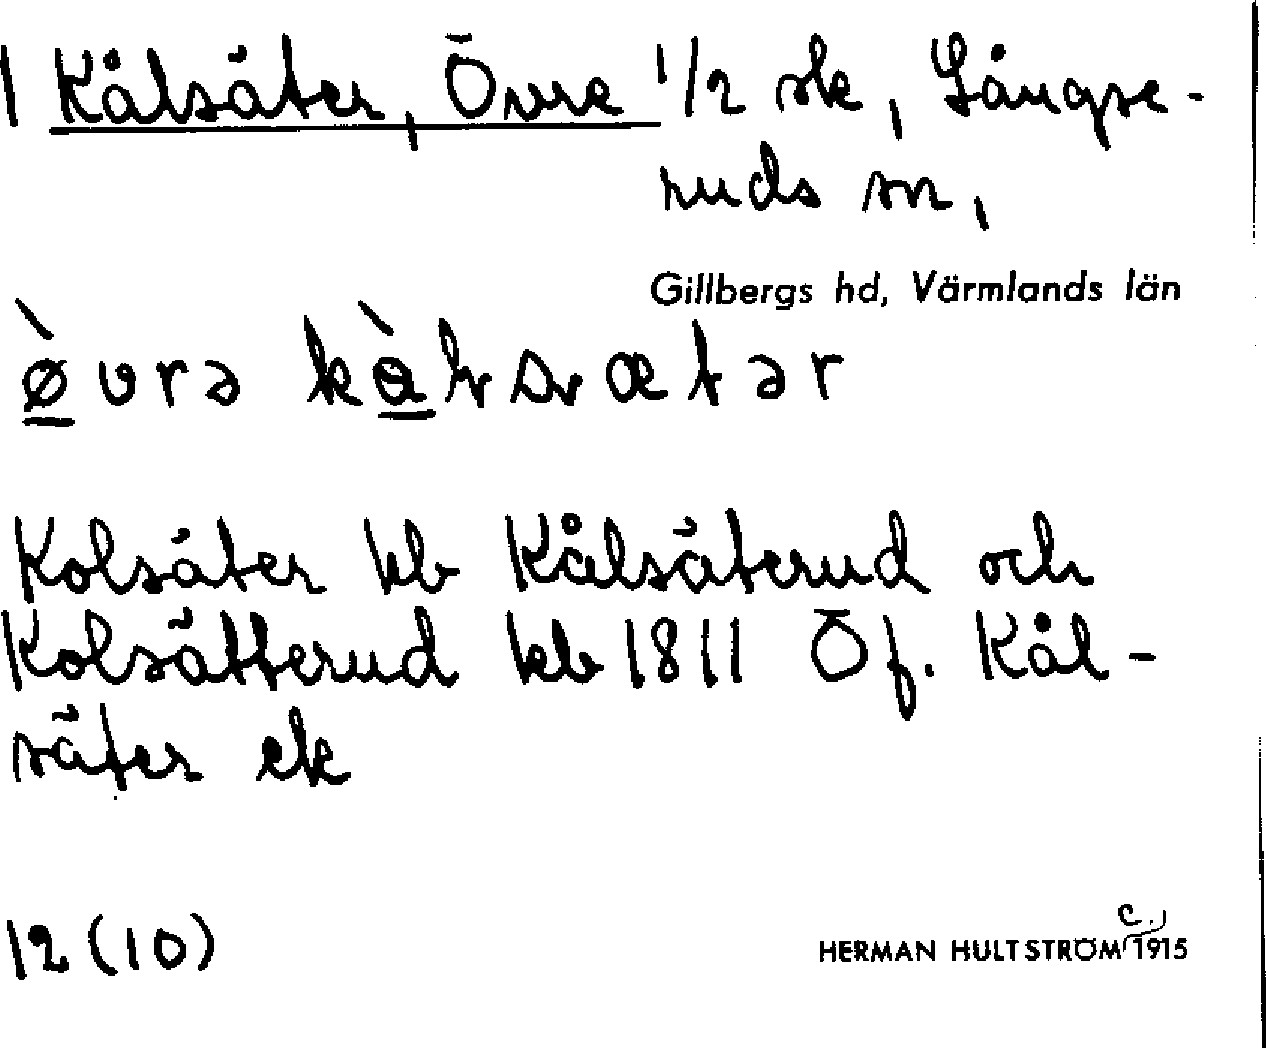 1 Kålsäter, Övre 1/2 sk, Långse-
ruds sn,
Gillbergs hd, Värmlands län
Kolsäter kb Kålsäterud och
Kolsätterud kb 1811 Öf. Kål-
säter ek
12 (10)
HERMAN HULTSTRÖM c. 1915